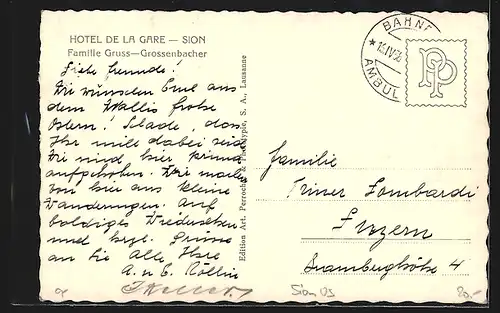 HOTEL DE LA GARE — SION
Familie Gruss—Grossenbacher
Liebe Freunde!
Wir wünschen Euch aus
dem Wallis frohe
Ostern! Schade, dass
Ihr nicht dabei seid
Wir sind hier prima
aufgehoben. Wir machen
von hier aus kleine
Wanderungen. Auf
baldiges Wiedersehen
und herzl. Grüsse
an Sie Alle Ihre
A. u. E.
Edition Art. Perrochet & Phototypie, S. A., Lausanne
BAHNP
AMBUL
PP
Familie
Triner Lombardi
Luzern
Bramberghöhe 4
Sion
20.-